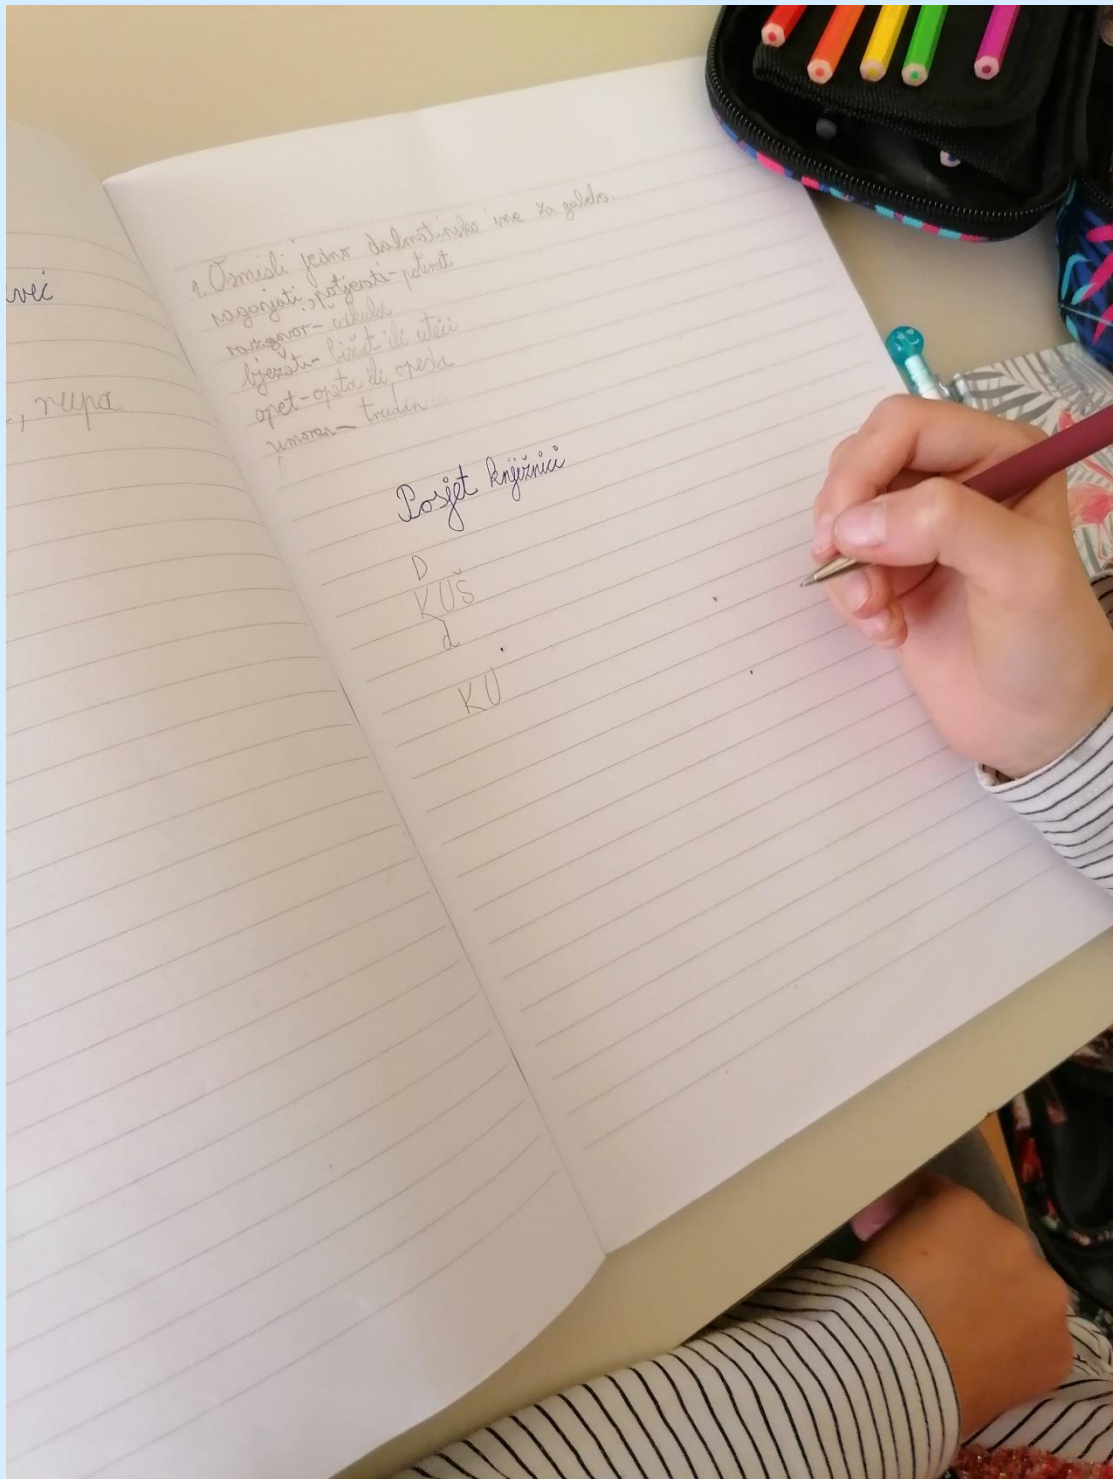 već
, rupa
1. Osmisli jedno dalmatinsko ime za galeba.
naganjati, potjerati - potirat
razgovor - ćakula
bježati - bižat ili uteći
opet - opeta ili
umoran - trudan
Posjet knjižnici
D
KUŠ
d
KU